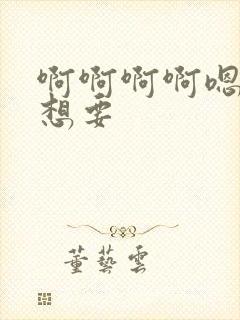 啊啊啊啊嗯
想要
董艺云